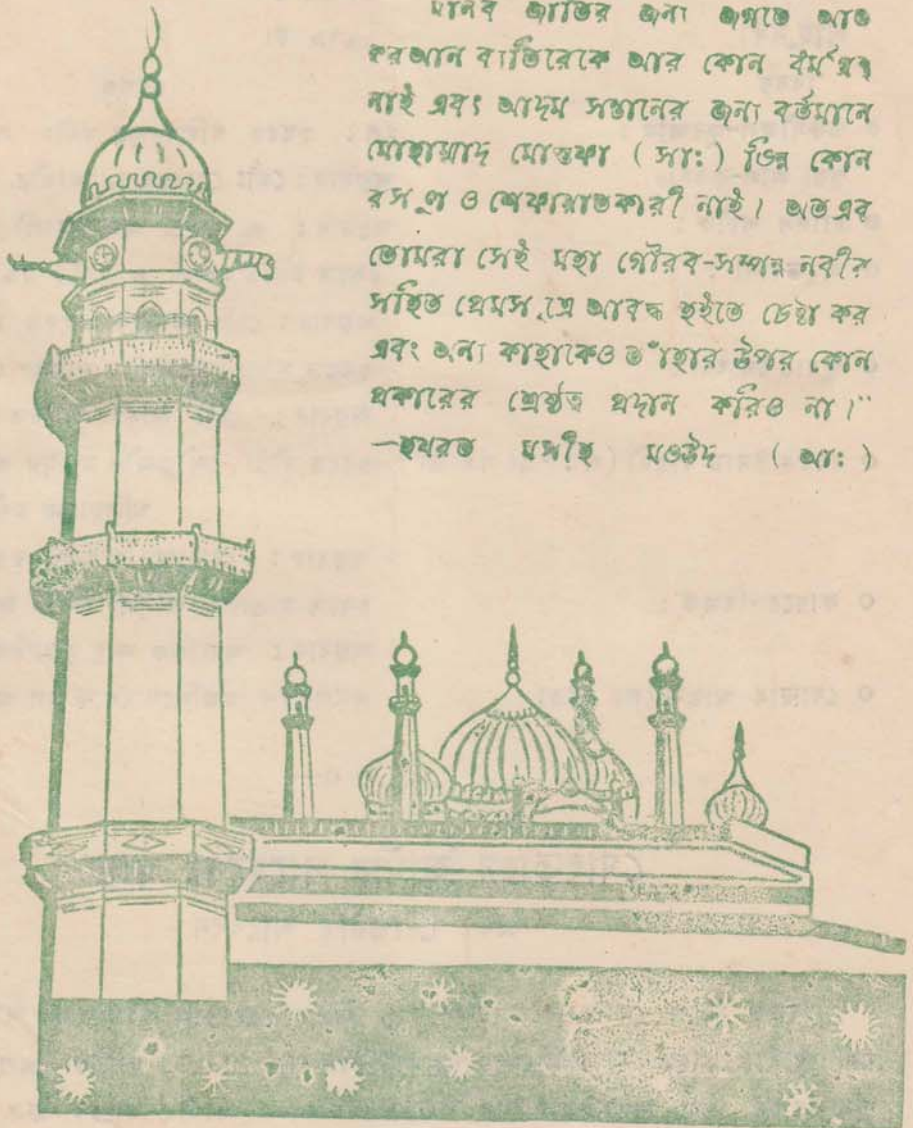 মানব জাতির জন্য জগতে আজ
করআন ব্যতিরেকে আর কোন ধর্ম গ্রন্থ
নাই এবং আদম সন্তানের জন্য বর্তমানে
মোহাম্মাদ মোস্তফা ( সাঃ ) ভিন্ন কোন
রসূল ও শেফায়াতকারী নাই। অতএব
তোমরা সেই মহা গৌরব-সম্পন্ন নবীর
সহিত প্রেমসূত্রে আবদ্ধ হইতে চেষ্টা কর
এবং অন্য কাহাকেও তাঁহার উপর কোন
প্রকারের শ্রেষ্ঠত্ব প্রদান করিও না।"
—হযরত মসীহ মওউদ ( আঃ )